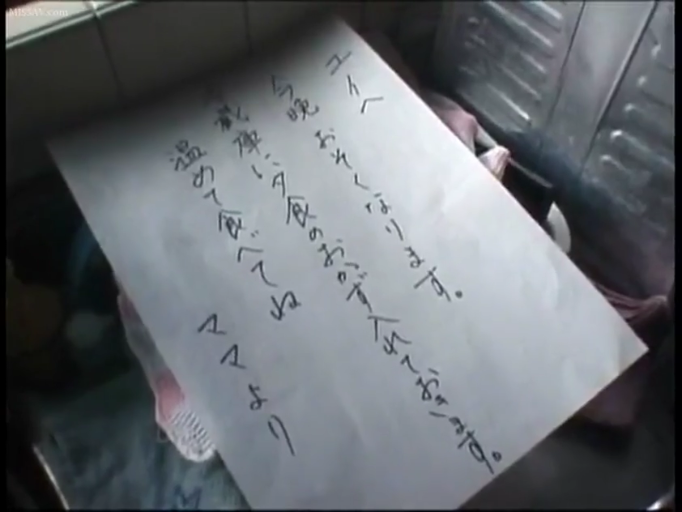 MissAV.com
ユイへ
今晩おそくなります。
蔵庫に夕食のおかず入れておきます。
温めて食べてね
ママより